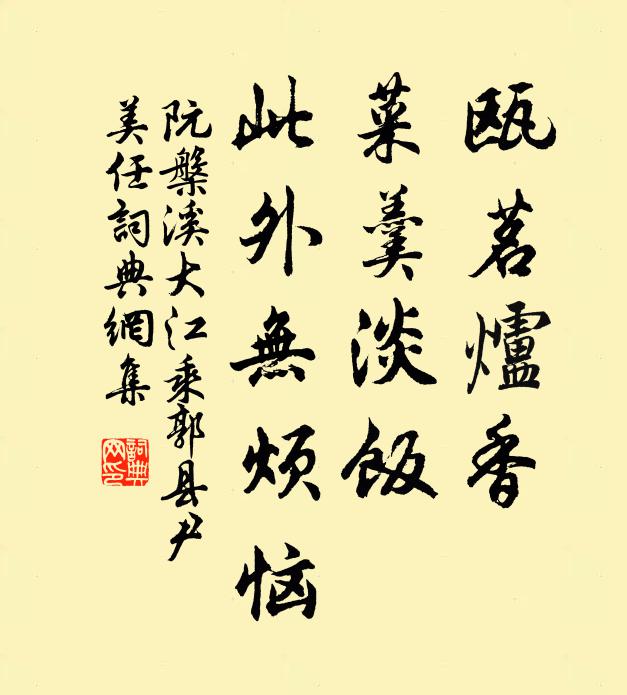 瓯茗爐香
菜羹淡飯
此外無煩恼
阮槃溪大江乘郭县尹
美任詞典網集
詞典
网印